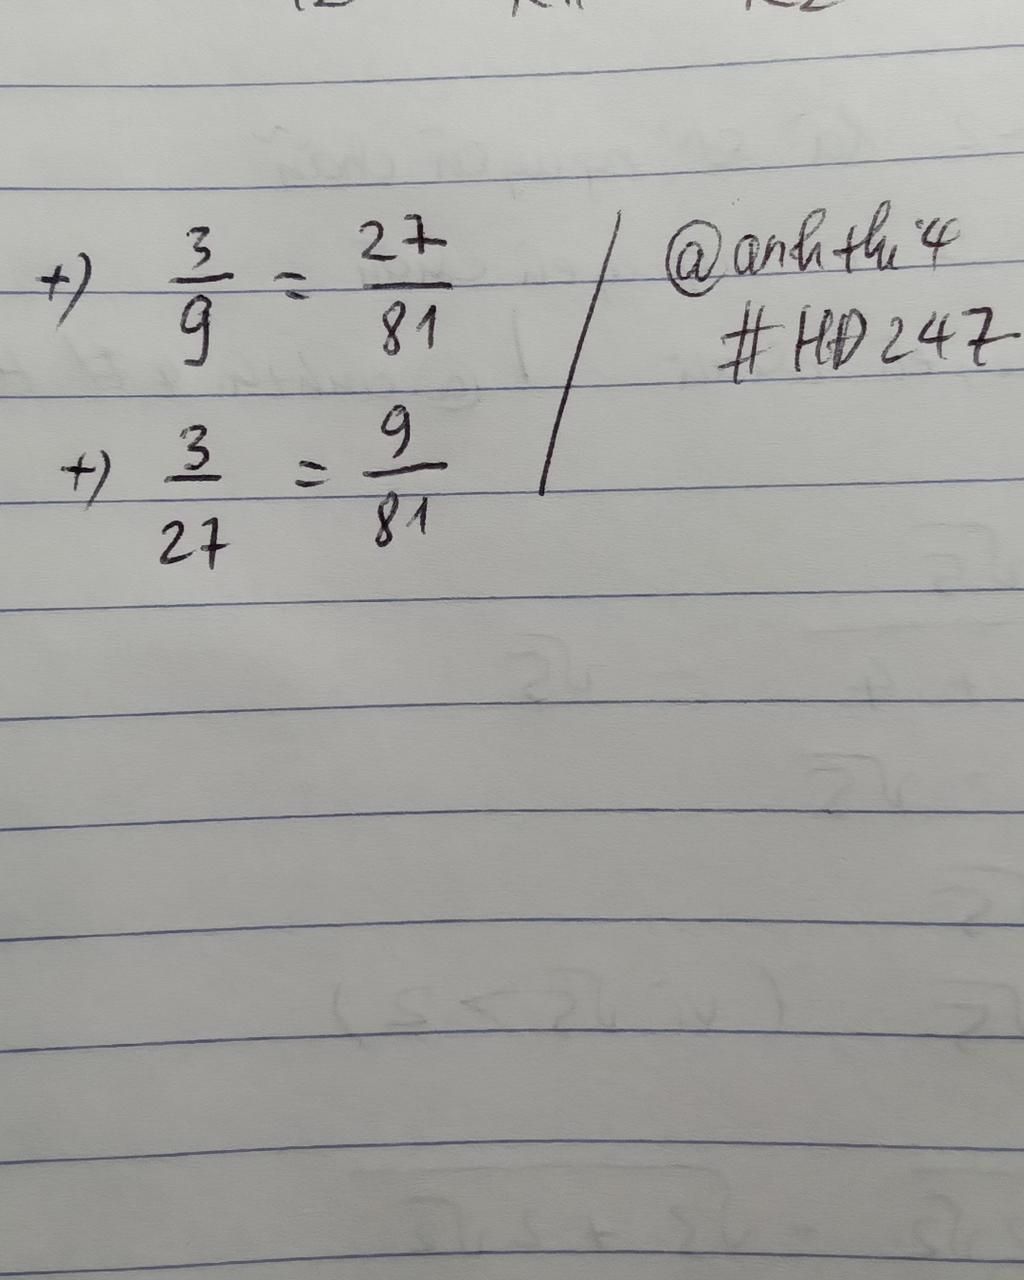 +) 3/9 = 27/81
+) 3/27 = 9/81
@anhthi4
#HD247